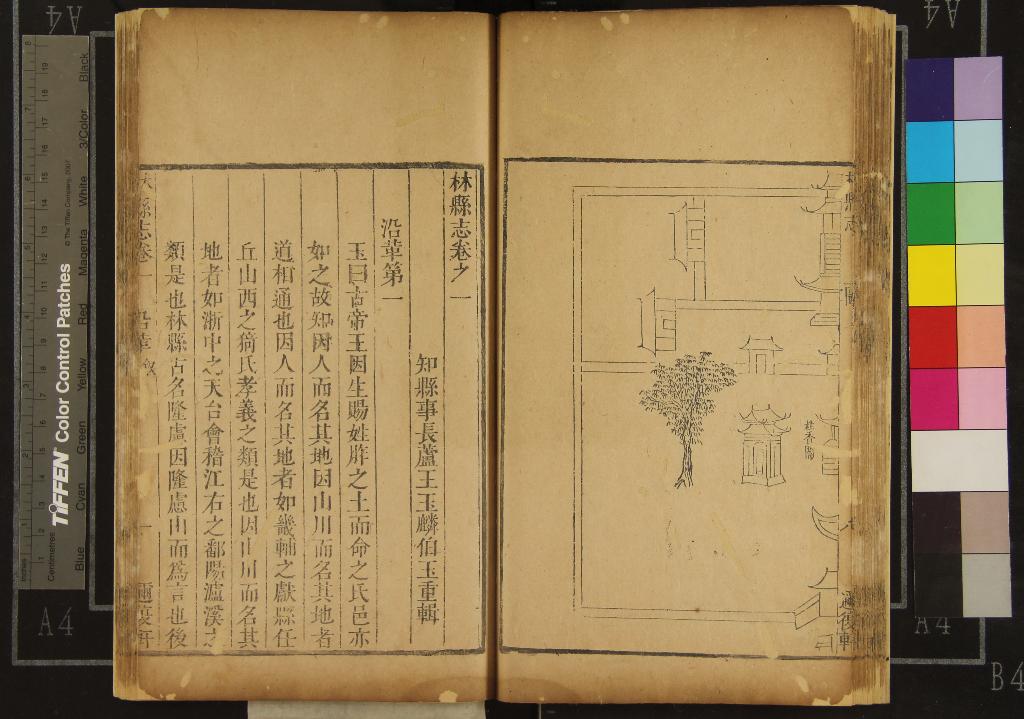 桂香閣
林縣志卷之一
知縣事長蘆王玉麟伯玉重輯
沿革第一
玉曰古帝王因生賜姓胙之土而命之氏邑亦
如之故知因人而名其地因山川而名其地者
道相通也因人而名其地者如畿輔之獻縣任
丘山西之猗氏孝義之類是也因山川而名其
地者如浙中之天台會稽江右之鄱陽瀘溪之
類是也林縣古名隆慮因隆慮山而為言也後
縣志卷一
沿革
一
TIFFEN Color Control Patches
© The Tiffen Company, 2007
Centimetres
Inches
Blue
Cyan
Green
Yellow
Red
Magenta
White
3/Color
Black
A4
A4
A4
A4
B4